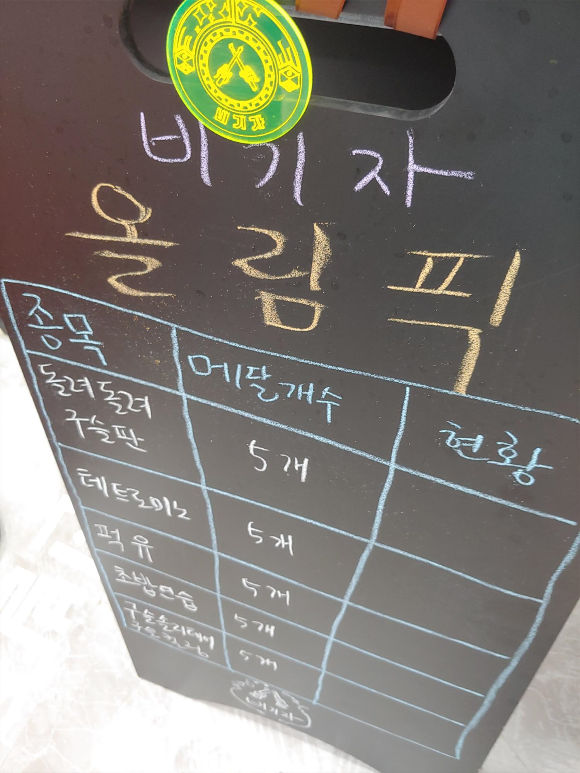 비기자
비기자
올림픽
종목 메달개수 현황
돌려돌려
구슬판 5개
테트로미노 5개
퍽유 5개
초밥연습 5개
구슬솔리테어 5개
5개
비기자